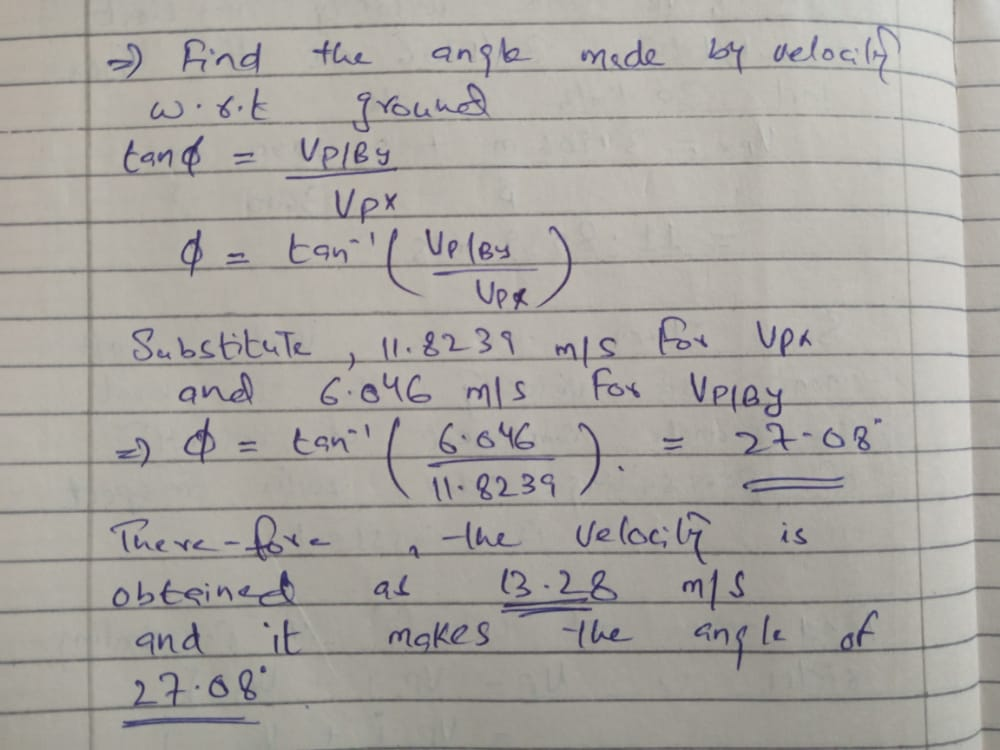 ⇒ Find the angle made by velocity
w.r.t ground
tanϕ = VP/By
VPx
ϕ = tan⁻¹ ( VP/By / VPx )
Substitute, 11.8239 m/s for VPx
and 6.046 m/s for VP/By
⇒ ϕ = tan⁻¹ ( 6.046 / 11.8239 ). = 27.08°
There-fore, the velocity is
obtained as 13.28 m/s
and it makes the angle of
27.08°